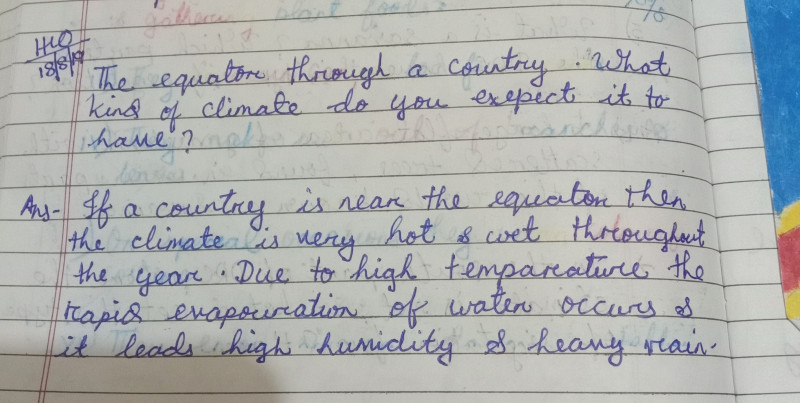 H.W
18/8/19
The equator through a country. What
kind of climate do you exepect it to
have?
Ans- If a country is near the equator then
the climate is very hot & wet throughout
the year. Due to high temparature the
rapid evapouration of water occurs &
it leads high humidity & heavy rain.